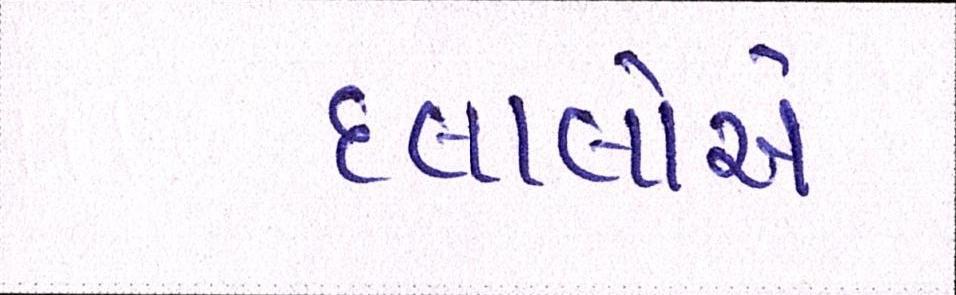 દલાલોએ